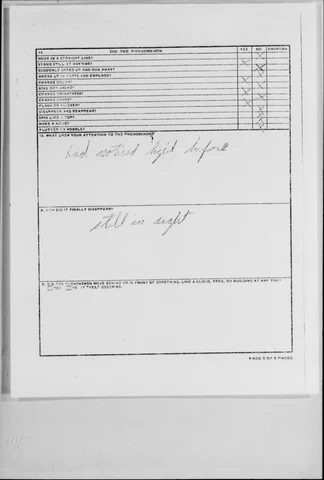 15 DID THE PHENOMENON YES NO UNKNOWN
MOVE IN A STRAIGHT LINE? X
STAND STILL AT ANYTIME? X
SUDDENLY SPEED UP AND RUN AWAY? X
BREAK UP IN PARTS AND EXPLODE? X
CHANGE COLOR? X
GIVE OFF SMOKE? X
CHANGE BRIGHTNESS? X
CHANGE SHAPE? X
FLASH OR FLICKER? X
DISAPPEAR AND REAPPEAR? X
SPIN LIKE A TOP? X
MAKE A NOISE? X
FLUTTER OR WOBBLE? X
WHAT DREW YOUR ATTENTION TO THE PHENOMENON?
had noticed light before
DID IT FINALLY DISAPPEAR?
still in sight
DID THE PHENOMENON MOVE BEHIND OR IN FRONT OF SOMETHING, LIKE A CLOUD, TREE, OR BUILDING AT ANY TIME?
YES IF "YES," DESCRIBE:
PAGE 5 OF 8 PAGES